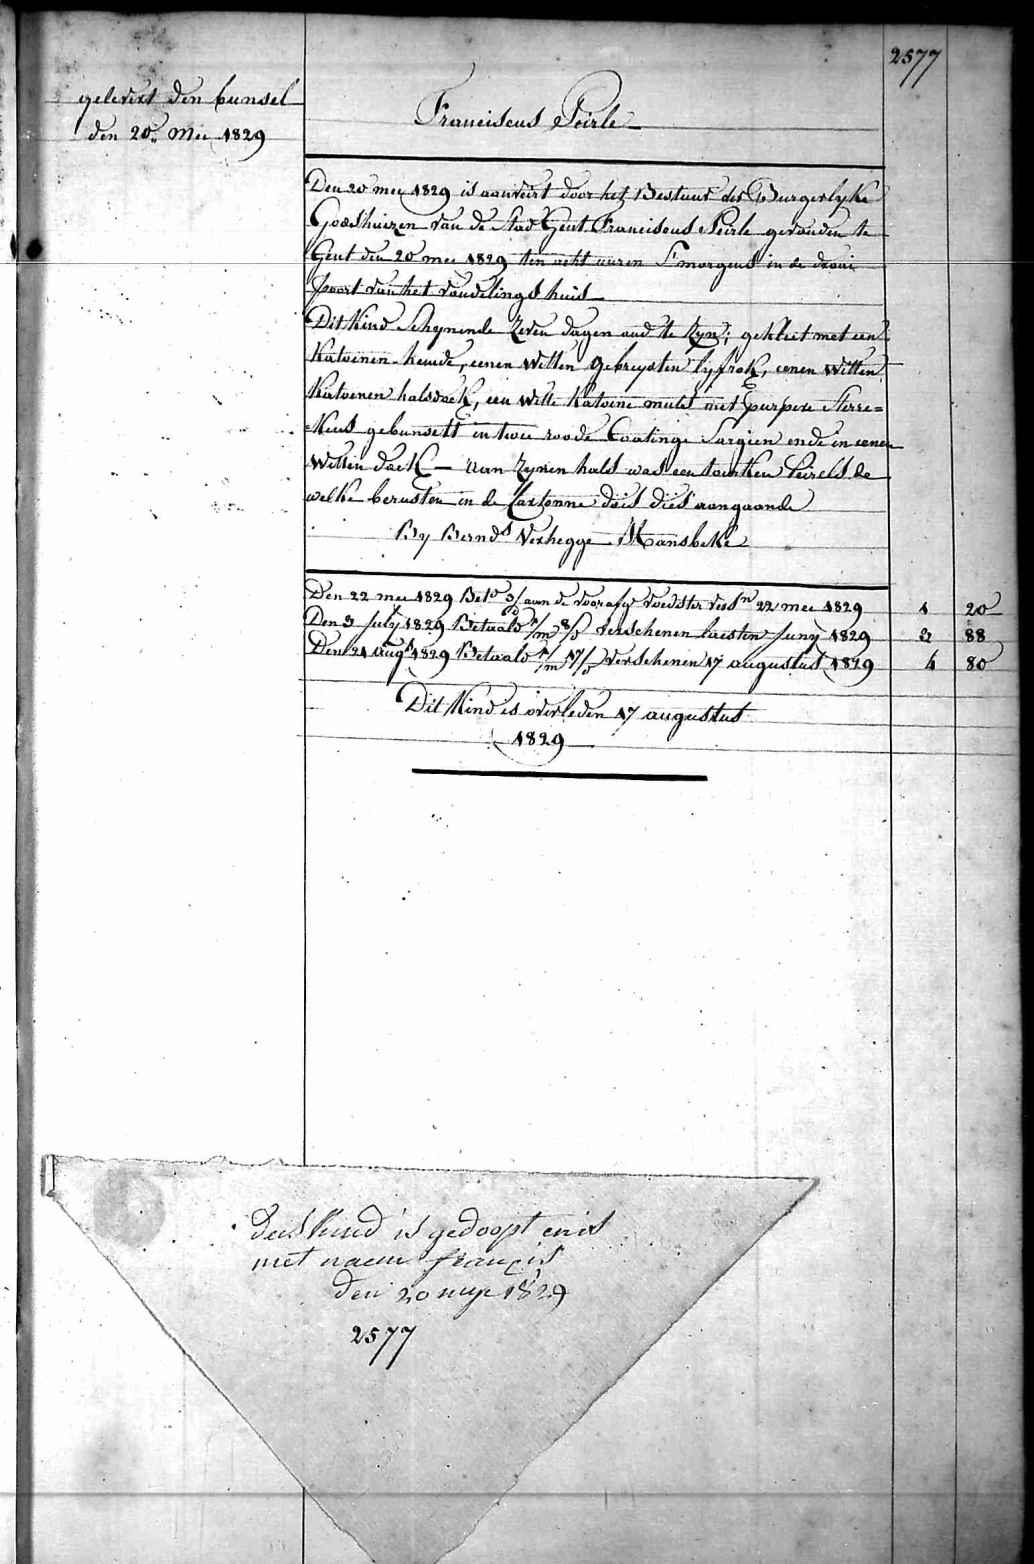 2577
gelevert den bunsel
den 20 Mei 1829
Franciscus Peirle
Den 20 mei 1829 is aanveirt door het Bestuur der Burgerlyke
Godshuizen van de Stad Gent Franciscus Peirle gevonden te
Gent den 20 mei 1829 ten acht uuren S'morgens in de draai
poort van het vondelings huis
Dit Kind Schynende Zeven dagen oud te Zyn; gekleit met een
Katoenen hemde, eenen Witten gebreyden lyfrok, eenen Witten
Katoenen halsdoek, een Witte Katoene muts met purpere Sterre=
Kens gebunselt in twee roode Coatinge Sargien ende in eenen
Witten doek — Aan Zynen hals was een tourken Peirels de
welke berusten in de Cartonne dois dies aangaande
By Bernds Verhegge Mansbeke
Den 22 mei 1829 Betd 3/ aan de voedster 22 mei 1829 1 20
Den 3 July 1829 Betaald 8/ Verschenen laesten Juny 1829 2 88
Den 21 augt 1829 Betaald 17/ Verschenen 17 augustus 1829 4 80
Dit Kind is overleden 17 augustus
1829
Das Kind is gedoopt en is
met naem françis
den 20 mye 1829
2577